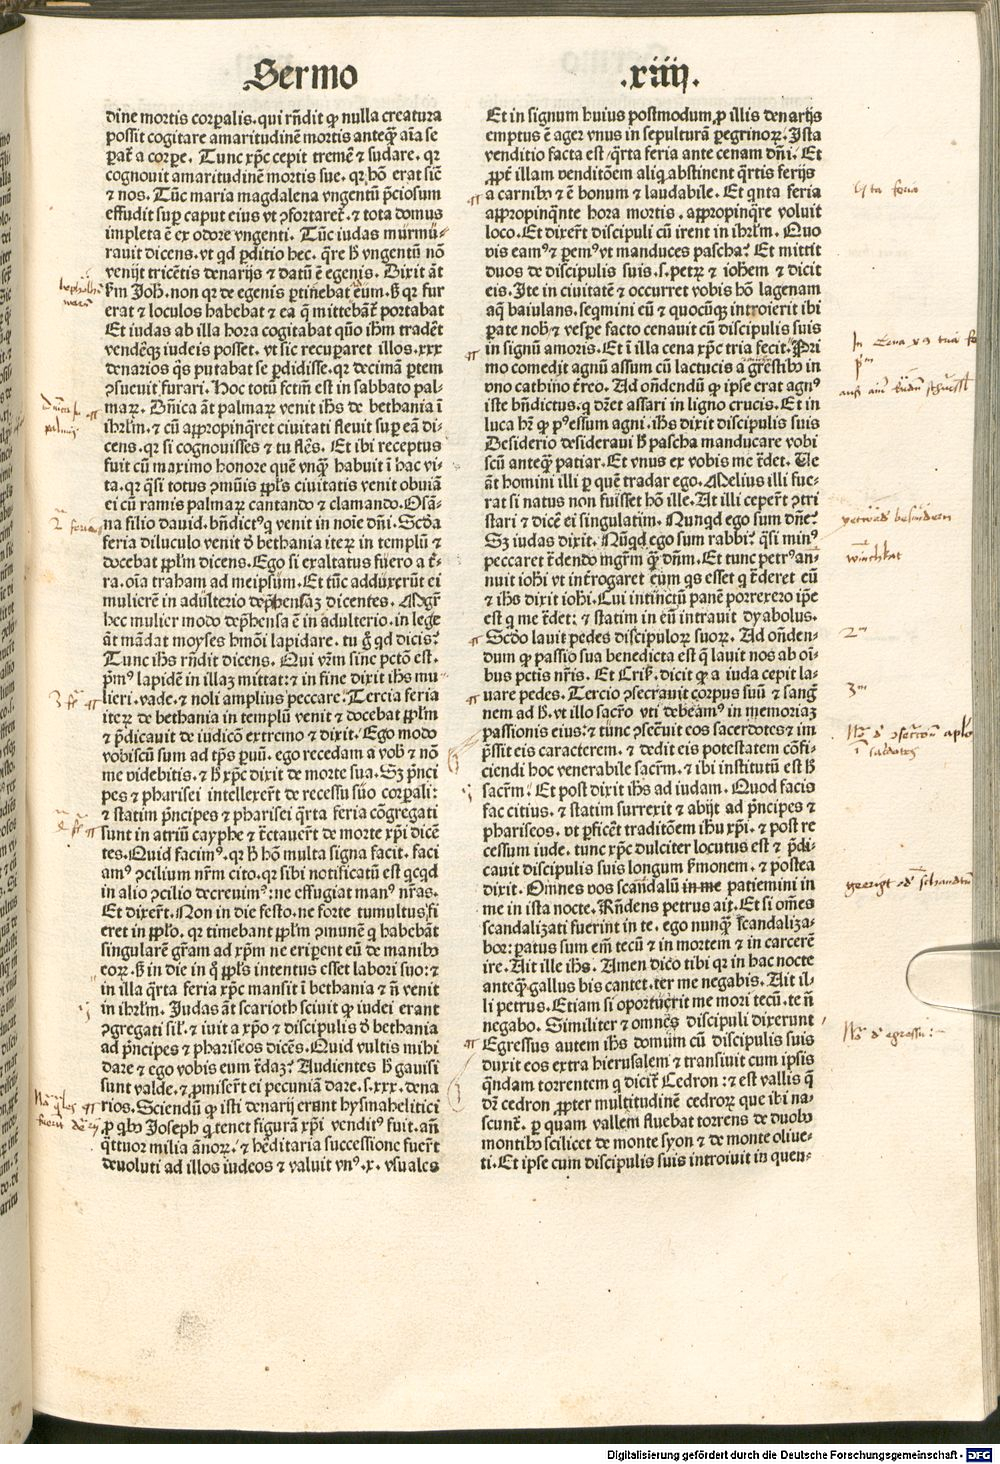 Sermo
.xiiij.
dine mortis corꝑalis. qui rn̄dit ꝙ nulla creatura
possit cogitare amaritudinē mortis anteqꝫ aīa se
parat̄ a corpe. Tunc xp̄c cepit tremē ⁊ sudare. qꝛ
cognouit amaritudinē mortis sue. qꝛ hō erat sic̄
⁊ nos. Tūc maria magdalena vngentū p̄ciosum
effudit suꝑ caput eius vt ꝯfortaret̄. ⁊ tota domus
impleta ē ex odore vngenti. Tūc iudas murmu⸗
rauit dicens. vt qd ꝑditio hec. q̄re h̄ vngentū nō
venijt tricētis denarijs ⁊ datū ē egenis. Dixit āt
Joh̄. non qꝛ de egenis ꝑtinebat eum. s̄ qꝛ fur
erat ⁊ loculos habebat ⁊ ea q̄ mittebāt̄ portabat
Et iudas ab illa hora cogitabat qūo ih̄m tradēt
vendēqꝫ iudeis posset. vt sic recuꝑaret illos .xxx
denarios qs putabat se ꝑdidisse. qꝛ decimā ꝑtem
ꝯsueuit furari. Hoc totū fctm̄ est in sabbato pal⸗
maꝝ. Dn̄ica āt palmaꝝ venit ih̄s de bethania ī
ih̄rlm̄. ⁊ cū aꝓpinqret ciuitati fleuit suꝑ eā di⸗
cens. qꝛ si cognouisses ⁊ tu flēs. Et ibi receptus
fuit cū maximo honore quē vnqꝫ habuit ī hac vi⸗
ta. qꝛ q̄si totus ꝯmūis ꝓpl̄s ciuitatis venit obuiā
ei cū ramis palmaꝝ cantando ⁊ clamando. Osā⸗
na filio dauid. bn̄dict⁹ q venit in noīe dn̄i. Scd̄a
feria diluculo venit d̄ bethania iteꝝ in templū ⁊
docebat ꝓpl̄m dicens. Ego si exaltatus fuero a t̄⸗
ra. oīa traham ad meipsum. Et tūc adduxerūt ei
mulierē in adulterio dep̄hensaꝫ dicentes. Mgr̄
hec mulier modo dep̄hensa ē in adulterio. in lege
āt mādat moyses hmōi lapidare. tu g̊ qd dicis?
Tunc ih̄s rn̄dit dicens. Qui vr̄m sine pctō est.
p̄m⁹ lapidē in illaꝫ mittat: ⁊ in fine dixit ih̄s mu⸗
lieri. vade. ⁊ noli amplius peccare. Tercia feria
iteꝝ de bethania in templū venit ⁊ docebat ꝓpl̄m
⁊ p̄dicauit de iudicō extremo ⁊ dixit. Ego modo
vobiscū sum ad tp̄s ꝑuū. ego recedam a vob̄ ⁊ nō
me videbitis. ⁊ h̄ xp̄c dixit de morte sua. Sꝫ p̄nci
pes ⁊ pharisei intellexer̄t de recessu suo corꝑali:
⁊ statim p̄ncipes ⁊ pharisei q̄rta feria cōgregati
sunt in atriū cayphe ⁊ tractauer̄t de morte xp̄i dicē
tes. Quid facim⁹. qꝛ h̄ hō multa signa facit. faci
am⁹ ꝯcilium nr̄m cito. qꝛ sibi notificatū est qcqd
in alio ꝯcilio decreuim⁹: ne effugiat man⁹ nr̄as.
Et dixer̄t. Non in die festo. ne forte tumultus fi
eret in ꝓpl̄o. qꝛ timebant ꝓpl̄m ꝯmunē q habebāt
singularē gr̄am ad xp̄m ne eriꝑent eū de manibꝫ
eoꝝ. s̄ in die in q̊ ꝓpl̄s intentus esset labori suo: ⁊
in illa q̄rta feria xp̄c mansit ī bethania ⁊ n̄ venit
in ih̄rlm̄. Judas āt scarioth sciuit ꝙ iudei erant
ꝯgregati sil̄. ⁊ iuit a xp̄o ⁊ discipulis d̄ bethania
ad p̄ncipes ⁊ phariseos dicēs. Quid vultis mihi
dare ⁊ ego vobis eum t̄daꝫ? Audientes h̄ gauisi
sunt valde. ⁊ ꝓmiser̄t ei pecuniā dare .s. xxx. dena
rios. Sciendū ꝙ isti denarij erant hysmahelitici
ꝓ qbꝫ Joseph q tenet figurā xp̄i vendit⁹ fuit. añ
q̄ttuor milia ānoꝝ. ⁊ hēditaria successione fuer̄t
deuoluti ad illos iudeos ⁊ valuit vn⁹ .x. vsuales
Et in signum huius postmodum ꝓ illis denarijs
emptus ē ager vnus in sepulturā peregrinoꝝ. Ista
venditio facta est q̄rta feria ante cenam dn̄i. Et
ꝓpt̄ illam venditōem aliq abstinent q̄rtis ferijs
a carnibꝫ ⁊ ē bonum ⁊ laudabile. Et qnta feria
aꝓpinqnte hora mortis. aꝓpinq̄re voluit
loco. Et dixer̄t discipuli cū irent in ih̄rlm̄. Quo
vis eam⁹ ⁊ ꝑem⁹ vt manduces pascha? Et mittit
duos de discipulis suis .s. petꝝ ⁊ ioh̄em ⁊ dicit
eis. Ite in ciuitatē ⁊ occurret vobis hō lagenam
aq̄ baiulans. seqmini eū ⁊ quocūqꝫ introierit ibi
ꝑate nob̄ ⁊ vesꝑe facto cenauit cū discipulis suis
in signū amoris. Et ī illa cena xp̄c tria fecit. Pri
mo comedit agnū assum cū lactucis agrestibꝫ in
vno cathino t̄reo. Ad on̄dendū ꝙ ipse erat agn⁹
iste bn̄dictus. q d̄ret assari in ligno crucis. Et in
luca hr̄ ꝙ p⁹ essum agni. ih̄s dixit discipulis suis
Desiderio desideraui h̄ pascha manducare vobi
scū anteqꝫ patiar. Et vnus ex vobis me t̄det. Ue
āt homini illi ꝑ quē tradar ego. Melius illi fue⸗
rat si natus non fuisset hō ille. At illi ceper̄t ꝯtri
stari ⁊ dicē ei singulatim. Nunqd ego sum dn̄e?
Sꝫ iudas dixit. Nūqd ego sum rabbi? q̄si min⁹
peccaret t̄dendo mgr̄m qꝫ dn̄m. Et tunc petr⁹ an⸗
nuit ioh̄i vt int̄rogaret eum qs esset q t̄deret eū
⁊ ih̄s dixit ioh̄i. Cui intinctū panē porrexero ip̄e
est q me t̄det: ⁊ statim in eū intrauit dyabolus.
Scd̄o lauit pedes discipuloꝝ suoꝝ. Ad on̄den⸗
dum ꝙ passio sua benedicta est q̄ lauit nos ab oī⸗
bus pctis nr̄is. Et Cris̄. dicit ꝙ a iuda cepit la⸗
uare pedes. Tercio ꝯsecrauit corpus suū ⁊ sangꝫ
nem ad h̄. vt illo sacr̄o vti debeam⁹ in memoriaꝫ
passionis eius: ⁊ tunc ꝯsec̄uit eos sacerdotes ⁊ im
p̄ssit eis caracterem. ⁊ dedit eis potestatem cōfi⸗
ciendi hoc venerabile sacr̄m. ⁊ ibi institutū est h̄
sacr̄m. Et post dixit ih̄s ad iudam. Quod facis
fac citius. ⁊ statim surrexit ⁊ abijt ad p̄ncipes ⁊
phariseos. vt ꝑficēt traditōem ih̄u xp̄i. ⁊ post re
cessum iude. tunc xp̄c dulciter locutus est ⁊ p̄di⸗
cauit discipulis suis longum s̄monem. ⁊ postea
dixit. Omnes vos scandalū in me patiemini in
me in ista nocte. Rn̄dens petrus ait. Et si om̄es
scandalizati fuerint in te. ego nunqꝫ scandaliza⸗
bor: paratus sum em̄ tecū ⁊ in mortem ⁊ in carcerē
ire. Ait ille ih̄s. Amen dico tibi qꝛ in hac nocte
anteqꝫ gallus bis cantet. ter me negabis. Ait il⸗
li petrus. Etiam si oportuerit me mori tecū. te n̄
negabo. Similiter ⁊ omnes discipuli dixerunt
Egressus autem ih̄s domum cū discipulis suis
duxit eos extra hierusalem ⁊ transiuit cum ipsis
q̄ndam torrentem q dicit̄ Cedron: ⁊ est vallis q̄
dꝛ̄ cedron ꝓpter multitudinē cedroꝝ que ibi na⸗
scunt̄. ꝑ quam vallem fluebat torrens de duobꝫ
montibꝫ scilicet de monte syon ⁊ de monte oliue⸗
ti. Et ipse cum discipulis suis introiuit in quen⸗
2ᵐ
3ᵐ
Digitalisierung gefördert durch die Deutsche Forschungsgemeinschaft - DFG